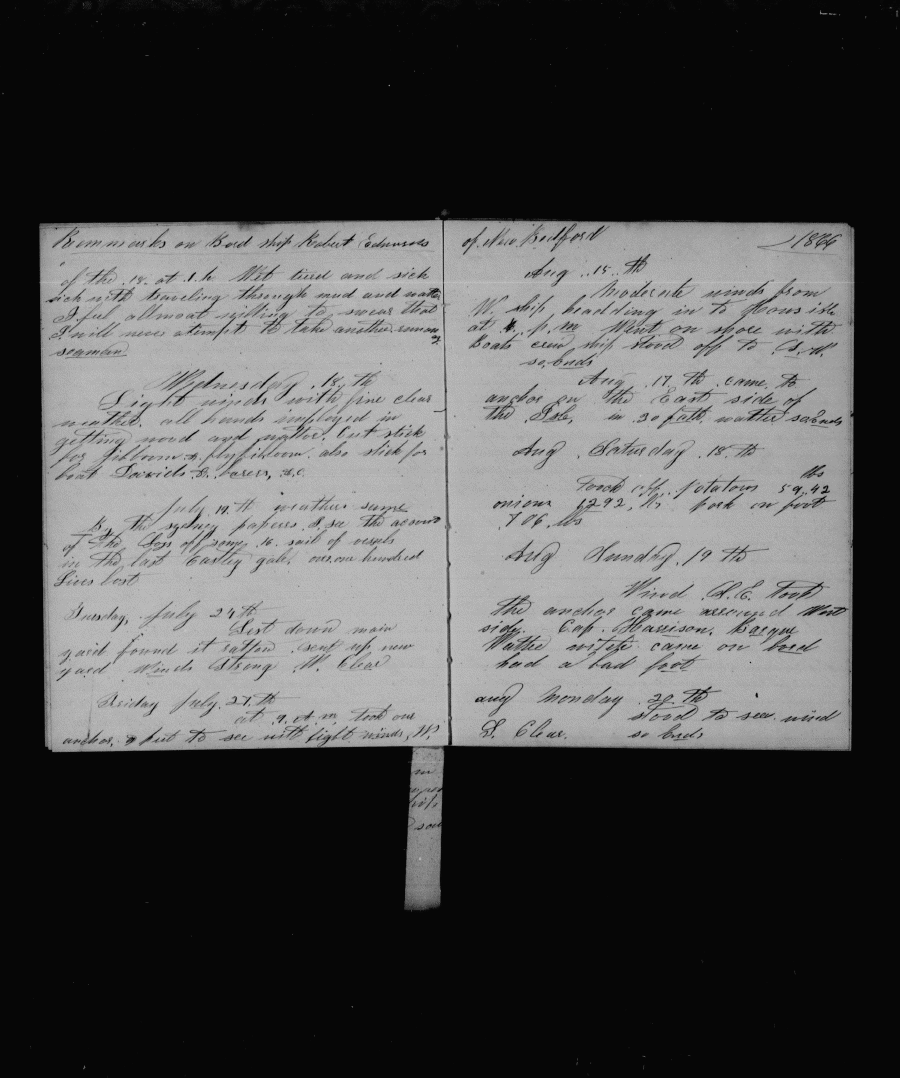 Remmarks on Bord ship Robert Edwards
of the 18. at 1. h Wet tired and sick
sick with traveling through mud and watter
I feel allmoast willing to swear that
I will never atempt to take another runaway
seaman
Wednesday 18. th
Light winds with fine clear
weather. all hands imployed in
getting wood and watter. Cut stick
for jibboom & flyjibboom. also stick for
boat
July 19. th weather same
By the sydney papers I see the account
of the Loss off some 16. sail of vessels
in the last Easterly gale, over one hundred
Lives lost
Tuesday, July 24th
Sent down main
yard found it rotten. Sent up new
yard Winds Strong W. Clear
Friday July. 27. th
at 9. A. m. took our
anchor, & put to see with light winds, W.
of New Bedford 1866
Aug .15. th
Moderate winds from
W. ship headding in to Hows isle
at 4. p. m Went on shore with
Boats crew ship stood off to S. W.
so Ends
Aug .17. th came to
anchor on the East side of
the Isle, in 30 fath. watter so Ends
Aug .Saturday .18. th
Toock off. potatows 59.42 lbs
onions 1292 lbs pork on foot
706. lbs
Aug Sunday .19 th
Wind S. E. Took
the anchor came arround West
side. Cap. Harrison. Barque
wife came on bord
had a bad foot
aug Monday .20. th
stood to sea wind
S. Clear. so Ends